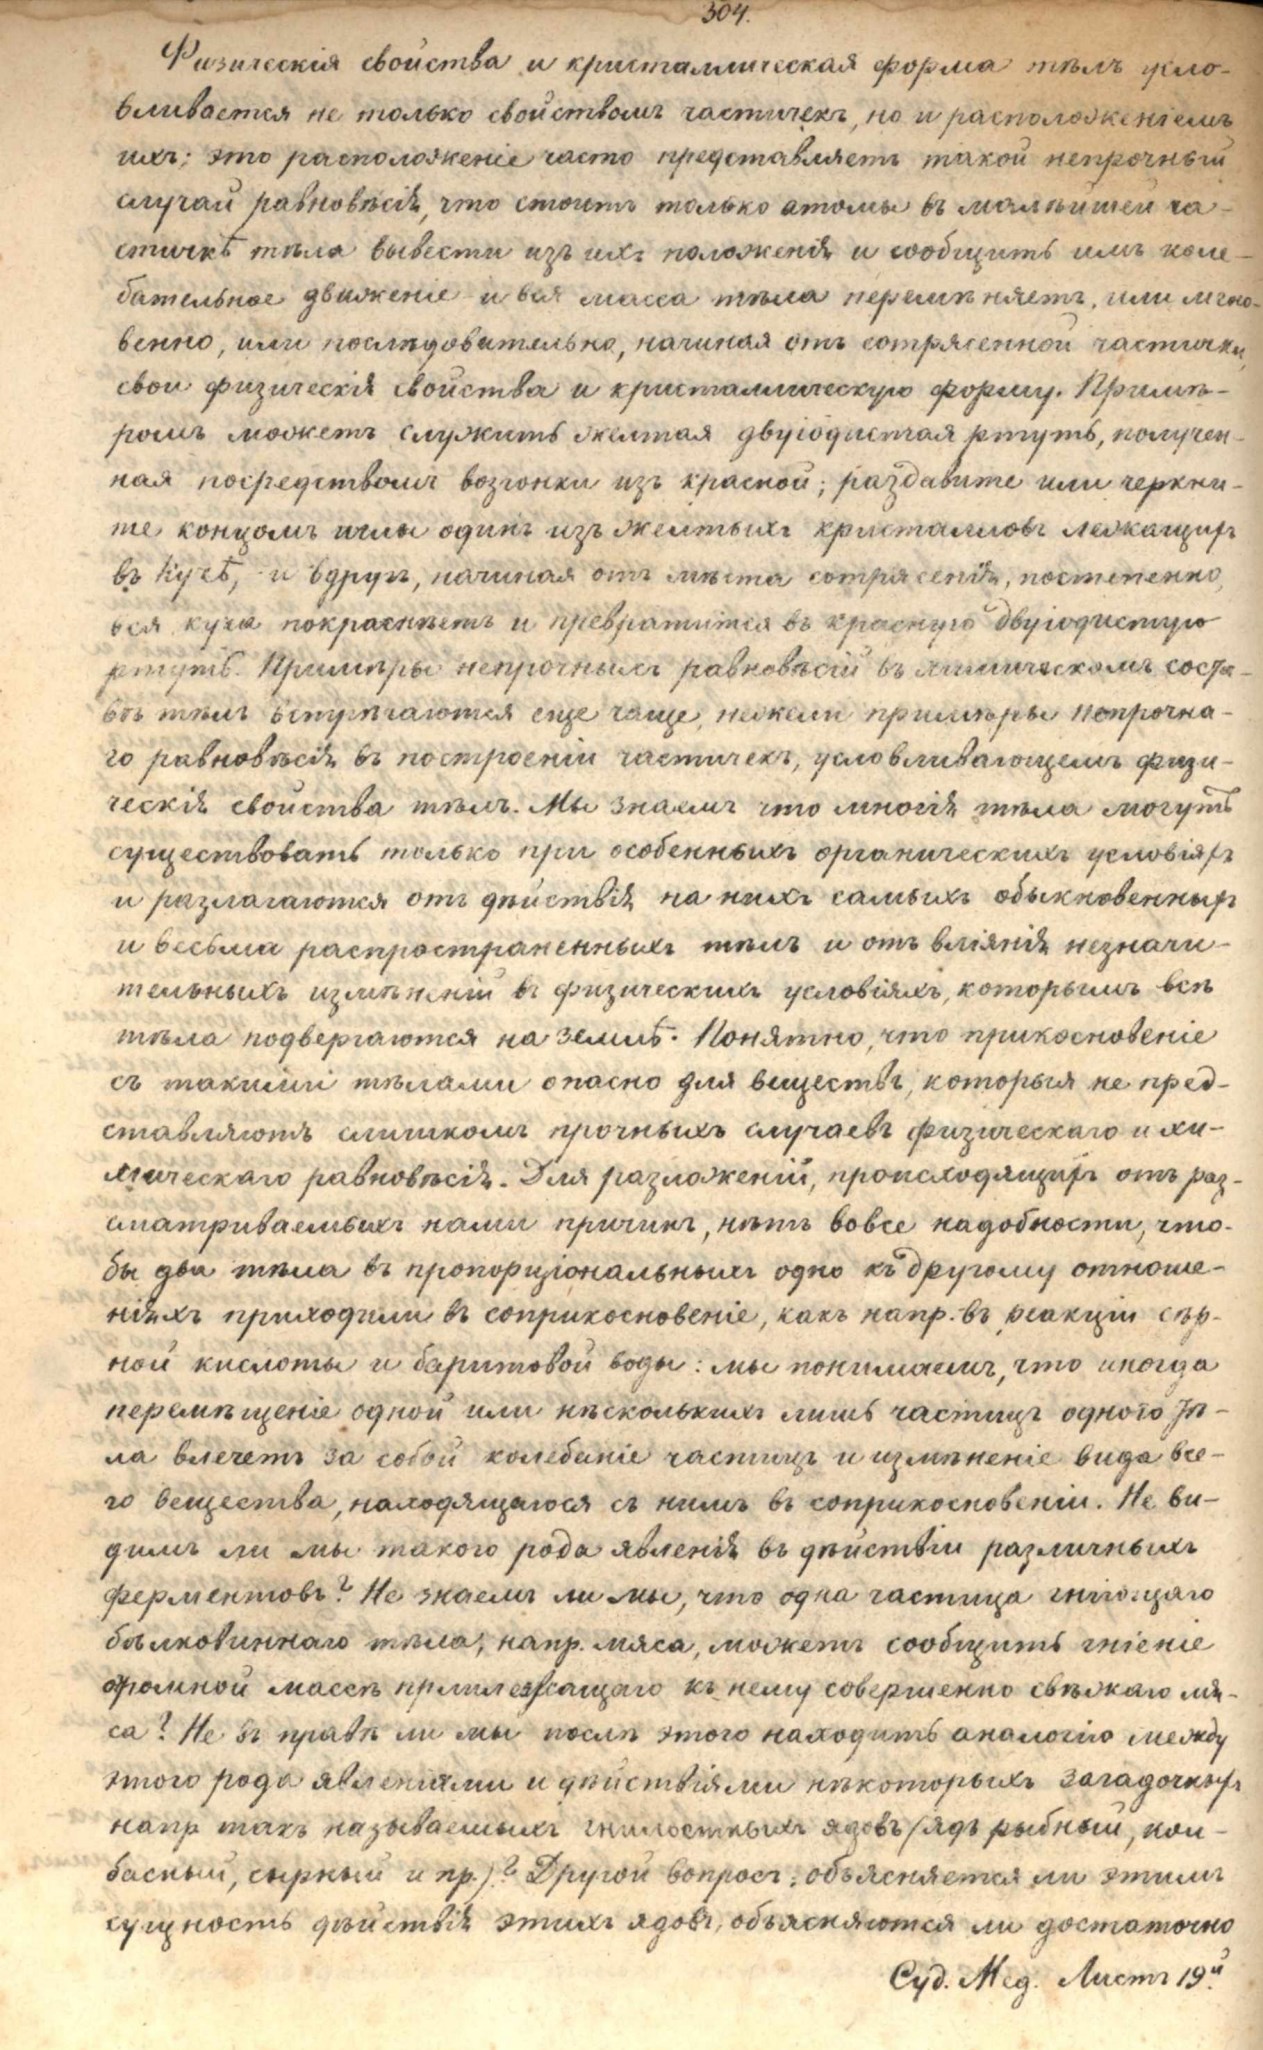 304.
Физическія свойства и кристаллическая форма тѣлъ усло-
вливается не только свойствомъ частичекъ, но и расположеніемъ
ихъ; это расположеніе часто представляетъ такой непрочный
случай равновѣсія, что стоитъ только атомы въ малѣйшей ча-
стичкѣ тѣла вывести изъ ихъ положенія и сообщить имъ коле-
бательное движеніе и вся масса тѣла перемѣняетъ, или мгно-
венно, или послѣдовательно, начиная отъ сотрясенной частички,
свои физическія свойства и кристаллическую форму. Примѣ-
ромъ можетъ служить желтая двуіодистая ртуть, получен-
ная посредствомъ возгонки изъ красной; раздавите или черкни-
те концомъ иглы одинъ изъ желтыхъ кристалловъ лежащихъ
въ кучѣ, и вдругъ, начиная отъ мѣста сотрясенія, постепенно,
вся куча покраснѣетъ и превратится въ красную двуіодистую
ртуть. Примѣры непрочныхъ равновѣсій въ химическомъ соста-
вѣ тѣлъ встрѣчаются еще чаще, нежели примѣры непрочна-
го равновѣсія въ построеніи частичекъ, условливающемъ физи-
ческія свойства тѣлъ. Мы знаемъ что многія тѣла могутъ
существовать только при особенныхъ органическихъ условіяхъ
и разлагаются отъ дѣйствія на нихъ самыхъ обыкновенныхъ
и весьма распространенныхъ тѣлъ и отъ вліянія незначи-
тельныхъ измѣненій въ физическихъ условіяхъ, которымъ всѣ
тѣла подвергаются на землѣ. Понятно, что прикосновеніе
съ такими тѣлами опасно для веществъ, которыя не пред-
ставляютъ слишкомъ прочныхъ случаевъ физическаго и хи-
мическаго равновѣсія. Для разложеній, происходящихъ отъ раз-
сматриваемыхъ нами причинъ, нѣтъ вовсе надобности, что-
бы два тѣла въ пропорціональныхъ одно къ другому отноше-
ніяхъ приходили въ соприкосновеніе, какъ напр. въ реакціи сѣр-
ной кислоты и баритовой воды: мы понимаемъ, что иногда
перемѣщеніе одной или нѣсколькихъ лишь частицъ одного тѣ-
ла влечетъ за собой колебаніе частицъ и измѣненіе вида все-
го вещества, находящагося съ нимъ въ соприкосновеніи. Не ви-
димъ ли мы такого рода явленія въ дѣйствіи различныхъ
ферментовъ? Не знаемъ ли мы, что одна частица гніющаго
бѣлковиннаго тѣла, напр. мяса, можетъ сообщить гніеніе
огромной массѣ прилежащаго къ нему совершенно свѣжаго мя-
са? Не въ правѣ ли мы послѣ этого находить аналогію между
этого рода явленіями и дѣйствіями нѣкоторыхъ загадочныхъ
напр. такъ называемыхъ гнилостныхъ ядовъ (ядъ рыбный, кол-
басный, сырный и пр.)? Другой вопросъ: объясняется ли этимъ
сущность дѣйствія этихъ ядовъ, объясняются ли достаточно
Суд. Мед. Листъ 19й.